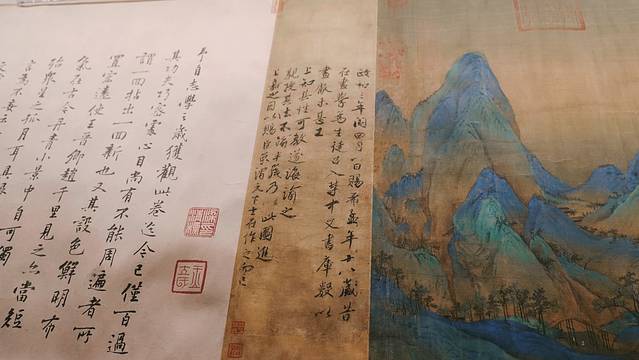 政和三年閏四月一日賜希孟年十八歲昔
在畫學為生徒召入禁中文書庫數以
畫獻未甚工
上知其性可教遂誨諭之
親授其法不踰半歲乃以此圖進
上嘉之因以賜臣京謂天下士在作之而已
予自志學之歲獲觀此卷迄今已僅百過
其功夫巧密處心目尚有不能周遍者所
謂一回拈出一回新也又其設色鮮明布
置宏遠使王晉卿趙千里見之亦當短
氣在古今丹青小景中自可獨
殆眾星之孤月耳具眼
言為不妄